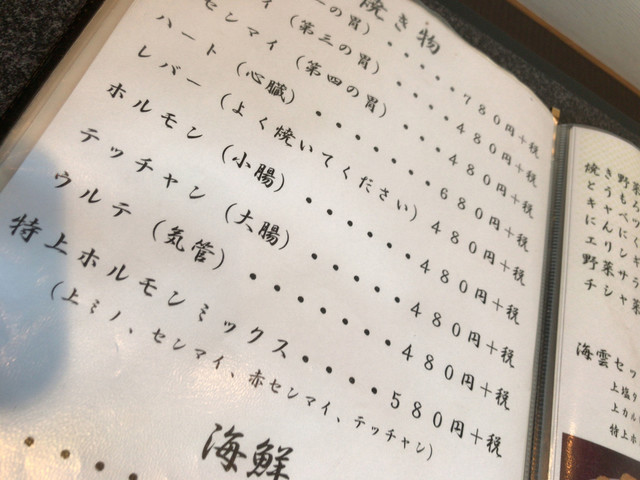 焼き物
一の胃)・・・・・780円+税
イ(第三の胃)・・・・480円+税
センマイ(第四の胃)・・・480円+税
ハート(心臓)・・・・・・・680円+税
レバー(よく焼いてください)480円+税
ホルモン(小腸)・・・・・・480円+税
テッチャン(大腸)・・・・・480円+税
ウルテ(気管)・・・・・・・480円+税
特上ホルモンミックス・・・・580円+税
(上ミノ、センマイ、赤センマイ、テッチャン)
海鮮
焼き野菜
とうもろ
キャベツ
にんに
エリンギ
野菜サラ
チシャ菜
海雲セッ
上塩タ
上カル
特上ホ